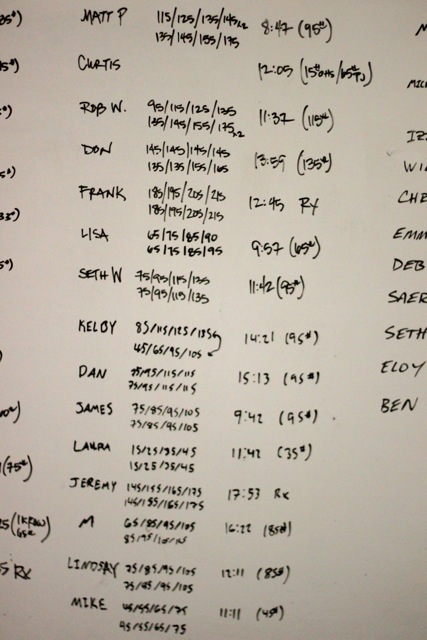 MATT P 115/125/135/145x2 8:47 (95#)
135/145/155/175
CURTIS 12:05 (15#OHS/65#PJ)
ROB W. 95/115/125/135 11:37 (115#)
135/145/155/175x2
DON 145/145/145/145 13:59 (135#)
135/135/155/165
FRANK 185/195/205/215 12:45 RX
185/195/205/215
LISA 65/75/85/90 9:57 (65#)
65/75/85/95
SETH W 75/95/115/135 11:42 (95#)
75/95/115/135
KELLY 85/115/125/135 14:21 (95#)
45/65/95/105
DAN 75/95/115/115 15:13 (95#)
75/95/115/115
JAMES 75/85/95/105 9:42 (95#)
75/85/95/105
LAURA 15/25/35/45 11:42 (35#)
15/25/35/45
JEREMY 145/155/165/175 17:53 RX
145/155/165/175
M 65/85/95/105 16:22 (85#)
LINDSAY 75/85/95/105 12:11 (85#)
75/85/95/105
MIKE 45/55/65/75 11:11 (45#)
45/55/65/75
(75#)
RX
EMM
DEB
SAER
SETH
ELOY
BEN